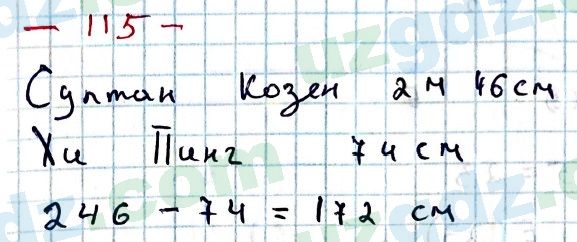 — 115 —
Султан Козен 2 м 46 см
Хи Пинг 74 см
246 - 74 = 172 см